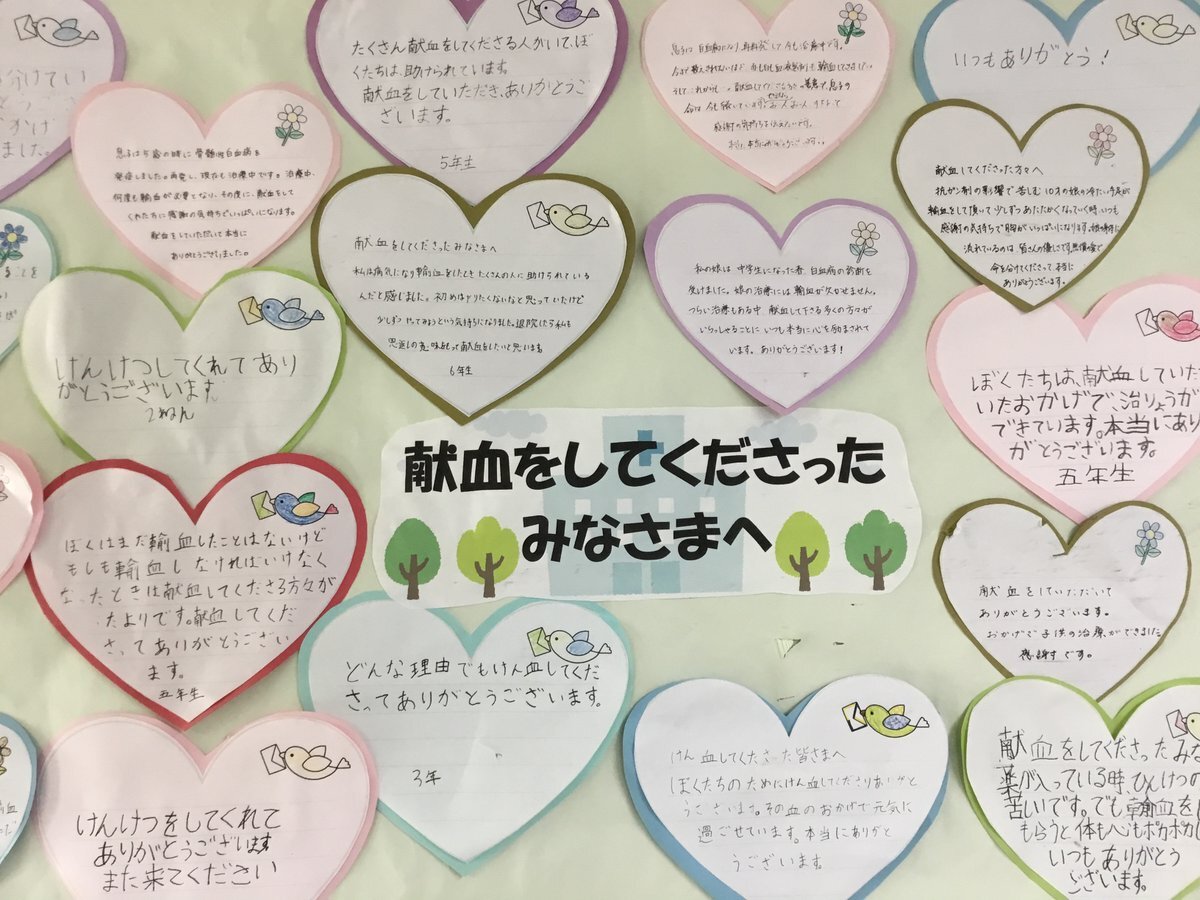 たくさん献血をしてくださる人がいて、ぼ
くたちは、助けられています。
献血をしていただき、ありがとうご
ざいます。
5年生
息子は白血病になり、再発して今も治療中です。
いつもありがとう!
息子は5歳の時に骨髄性白血病を
発症しました。再発し、現在も治療中です。治療中、
何度も輸血が必要となり、その度に、献血をして
くれた方に感謝の気持ちでいっぱいになります。
献血をしていただいて本当に
ありがとうございました。
献血をしてくださったみなさまへ
私は病気になり輸血をしたときたくさんの人に助けられている
んだと感じました。初めはやりたくないなと思っていたけど
少しずつやってみようという気持ちになりました。退院したら私も
恩返しの意味もこめて献血をしたいと思います
6年生
私の娘は中学生になった春、白血病の診断を
受けました。娘の治療には輸血が欠かせません。
つらい治療もある中、献血して下さる多くの方々が
いらっしゃることにいつも本当に心を励まされて
います。ありがとうございます!
献血してくださった方々へ
抗がん剤の影響で苦しむ10才の娘の冷たい手足が
輸血をして頂いて少しずつあたたかくなっていく時、いつも
感謝の気持ちで胸がいっぱいになります。娘の体に
流れているのは皆さんの優しさです。無償の愛で
命を分けてくださって、本当に
ありがとうございます。
けんけつしてくれてあり
がとうございます
2ねん
ぼくたちは、献血していた
いたおかげで、治りょうが
できています。本当にあり
がとうございます。
五年生
献血をしてくださった
みなさまへ
ぼくはまだ輸血したことはないけど
もしも輸血しなければいけなく
なったときは献血してくださる方々が
たよりです。献血してくだ
さってありがとうござい
ます。
五年生
献血をしていただいて
ありがとうございます。
おかげで子供の治療ができました
感謝です。
どんな理由でもけん血してくだ
さってありがとうございます。
3年
けん血してくださった皆さまへ
ぼくたちのためにけん血してくださりありがと
うございます。その血のおかげで元気に
過ごせています。本当にありがと
うございます。
献血をしてくださったみな
薬が入っている時、ひんけつの
苦いです。でも輸血を
もらうと体も心もポカポカ
いつもありがとう
ございます。
けんけつをしてくれて
ありがとうございます
また来てください